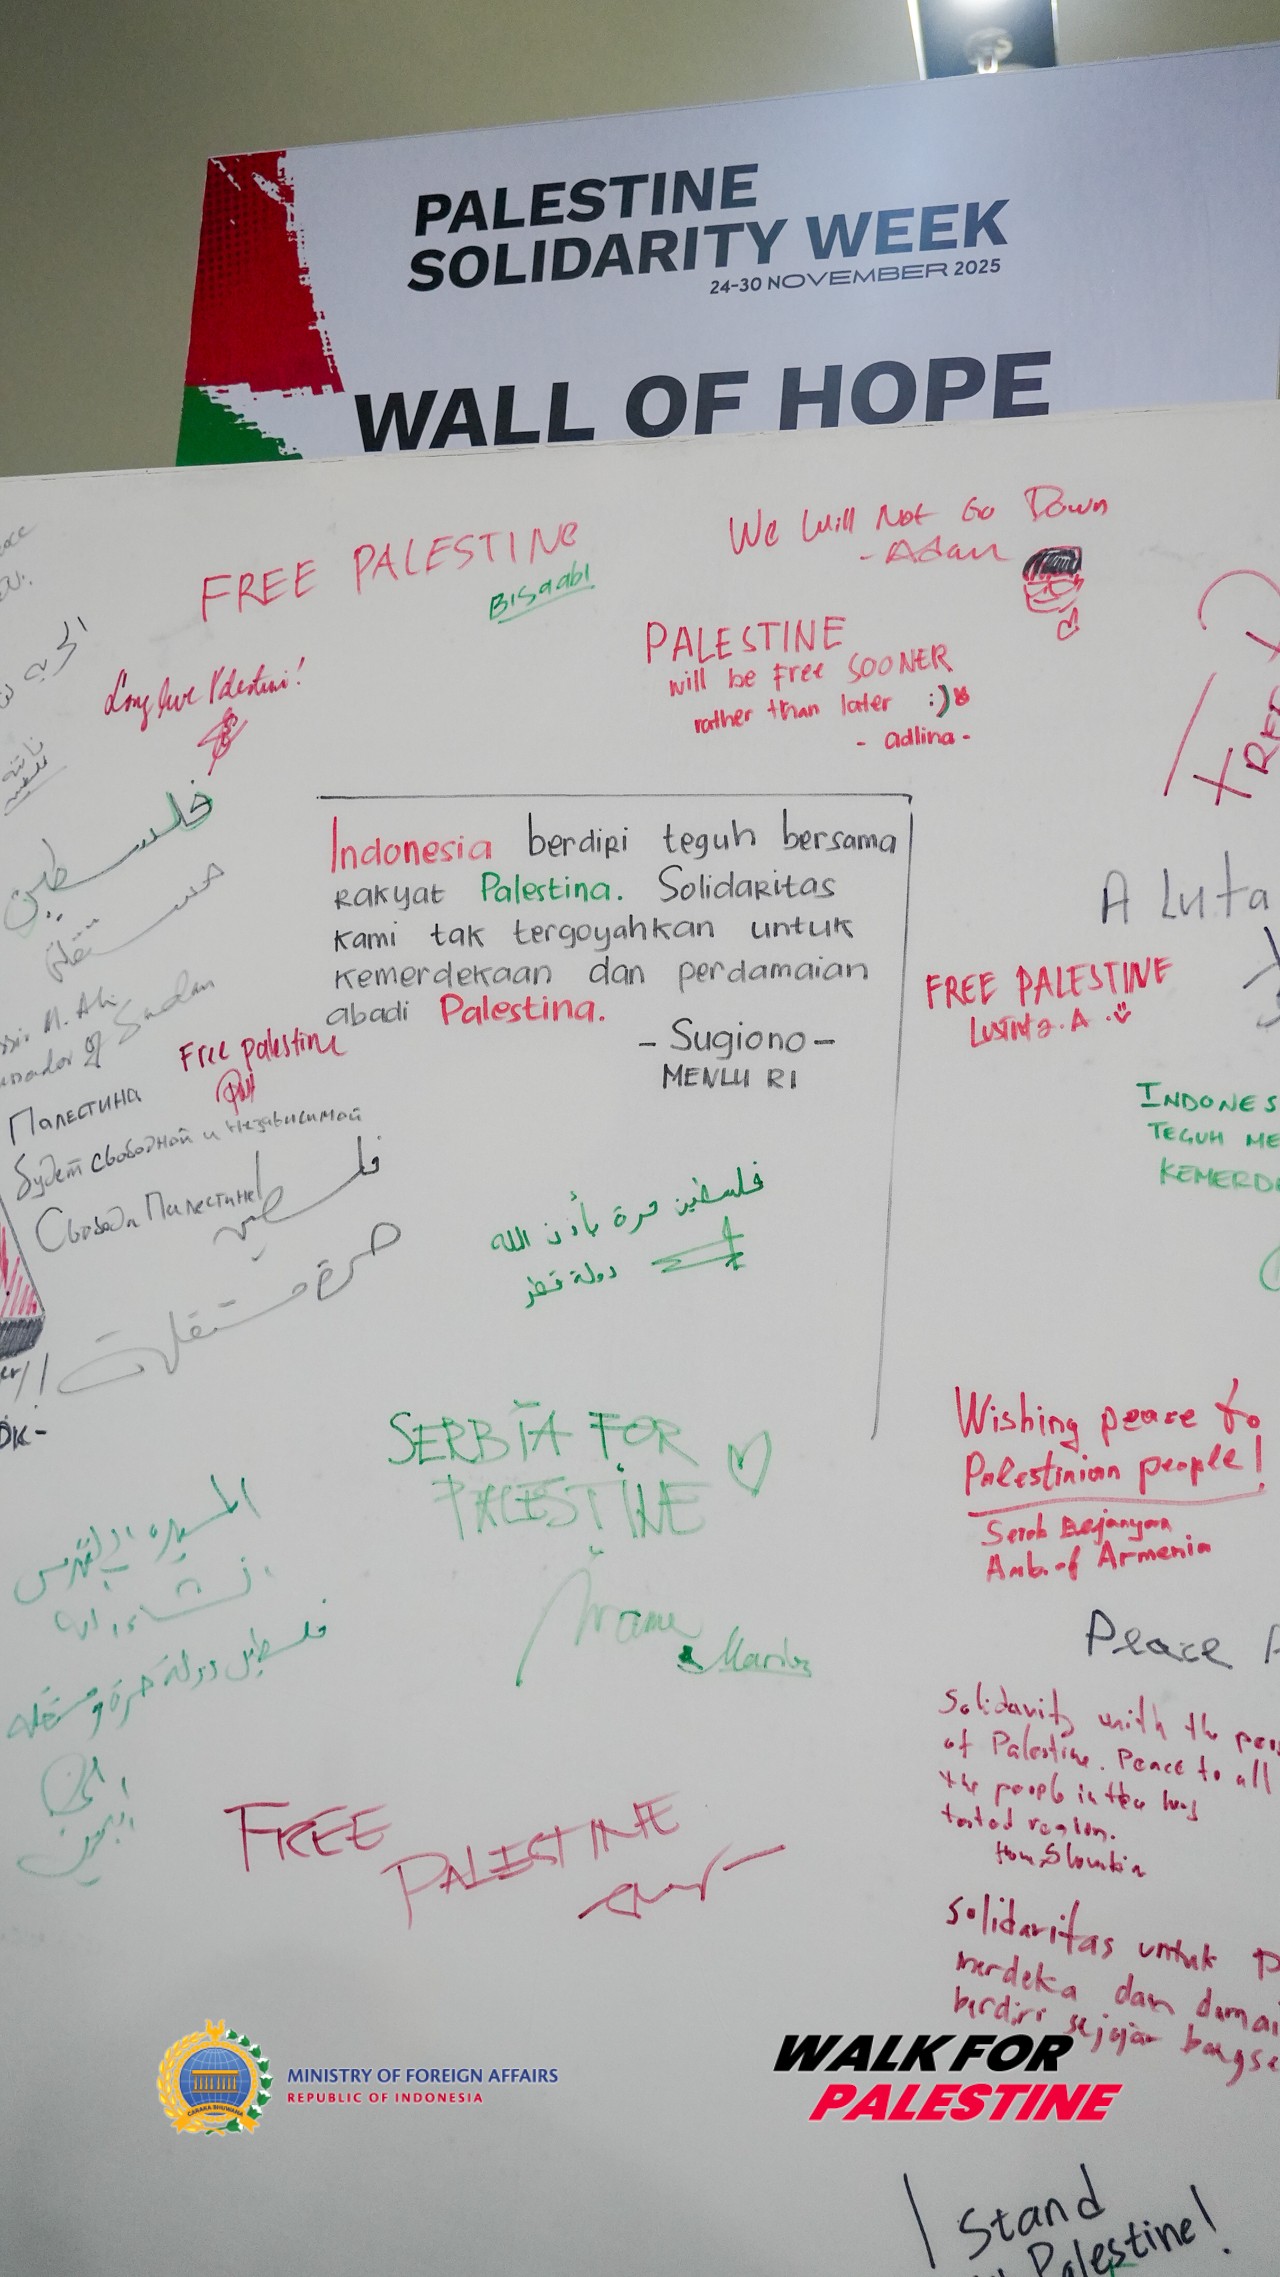 PALESTINE
SOLIDARITY WEEK
24-30 NOVEMBER 2025
WALL OF HOPE
FREE PALESTINE
BISaabi
We Will Not Go Down
- Adam
Long live Palestini!
PALESTINE
will be free SOONER
rather than later :)
- adlina -
فلسطين
حرة مستقلة
M. Ali
of Sudan
Indonesia berdiri teguh bersama
rakyat Palestina. Solidaritas
kami tak tergoyahkan untuk
kemerdekaan dan perdamaian
abadi Palestina.
- Sugiono -
MENLU RI
A Luta
FREE PALESTINE
Lusinta.A
Free palestine
Палестина
будет свободной и независимой
Свобода Палестине!
فلسطين
حرة مستقلة
INDONES
TEGUH ME
KEMERD
فلسطين حرة بأذن الله
دولة قطر
SERBIA FOR
PALESTINE
Wishing peace to
Palestinian people!
Serob Bejanyan
Amb. of Armenia
المسيرة الى القدس
انشاء الله
فلسطين دولة حرة ومستقلة
Peace
Solidarity with the peo
of Palestine. Peace to all
the people in the long
tested region.
from Slovakia
FREE
PALESTINE
Solidaritas untuk P
merdeka dan damai
berdiri sejajar bangsa
MINISTRY OF FOREIGN AFFAIRS
REPUBLIC OF INDONESIA
CARAKA BHUWANA
WALK FOR
PALESTINE
I Stand
Palestine!